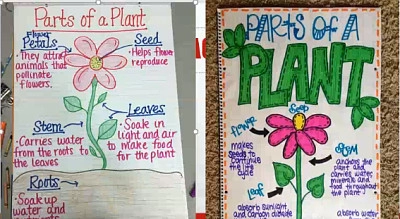 Parts of a Plant
Flower
Petals
• They attract
animals that
pollinate
flowers.
Seed
• Helps flower
reproduce
Leaves
• Soak in
light and air
to make food
for the plant
Stem
• Carries water
from the roots to
the leaves
Roots
• Soak up
water and
PARTS OF A
PLANT
SEED
flower
makes
seeds to
continue
the life
cycle
STEM
anchors the
plant and
carries water,
minerals and
food throughout
the plant
leaf
absorb sunlight,
and carbon dioxide
absorb water